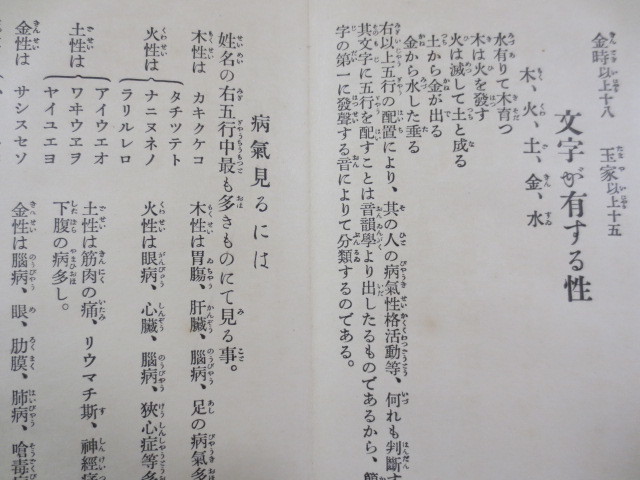 金時以上十八　玉家以上十五
文字が有する性
木、火、土、金、水
水有りて木育つ
木は火を發す
火は滅して土と成る
土から金が出る
金から水した垂る
右以上五行の配置により、其の人の病氣性格活動等、何れも判斷す
其文字に五行を配すことは音韻學より出したるものであるから、
字の第一に發聲する音によりて分類するのである。
病氣見るには
姓名の右五行中最も多きものにて見る事。
木性は　カキクケコ　木性は胃腸、肝臟、腦病、足の病氣多
火性は　タチツテト
ナニヌネノ
ラリルレロ
火性は眼病、心臟、腦病、狹心症等多
土性は　アイウエオ
ワヰウヱヲ
ヤイユエヨ
土性は筋肉の痛、リウマチ斯、神經痛
下腹の病多し。
金性は　サシスセソ　金性は腦病、眼、肋膜、肺病、喰毒病